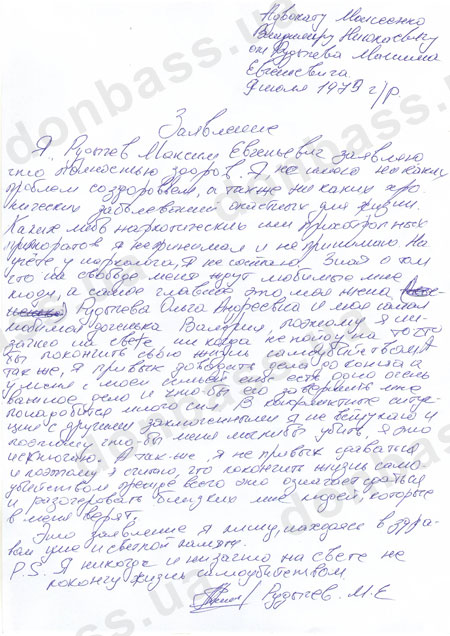 Адвокату Моисеенко
Владимиру Николаевичу
от Рудычева Максима
Евгеньевича
1979 г/р.
Заявление
Я, Рудычев Максим Евгеньевич заявляю
что полностью здоров. Я не имею никаких
проблем со здоровьем, а также никаких хро-
нических заболеваний опасных для жизни.
Каких либо наркотических или психотропных
препаратов я не принимал и не принимаю. На
учёте у нарколога, я не состоял. Зная о том
что на свободе меня ждут любимые мне
люди, а самое главное это моя жена
Рудычева Ольга Андреевна и моя самая
любимая доченька Валерия, поэтому я ни
зачто на свете никогда не пойду на то что
бы покончить свою жизнь самоубийством. А
так же, я привык доводить дела до конца а
у меня с моей семьей ещё есть одно очень
важное дело и что бы его завершить мне
понадобится много сил. В конфликтные ситуа-
ции с другими заключенными я не вступаю и
поэтому что бы меня могли бы убить, я это
исключаю. А так же я не привык сдаваться
и поэтому я считаю, что покончить жизнь само-
убийством прежде всего это означает сдаться
и разочеровать близких мне людей, которые
в меня верят.
Это заявление я пишу, находясь в здра-
вом уме и светлой памяти.
P.S. Я никогда и низачто на свете не
покончу жизнь самоубийством.
Рудычев. М.Е
donbass.ua
donbass.ua
donbass.ua